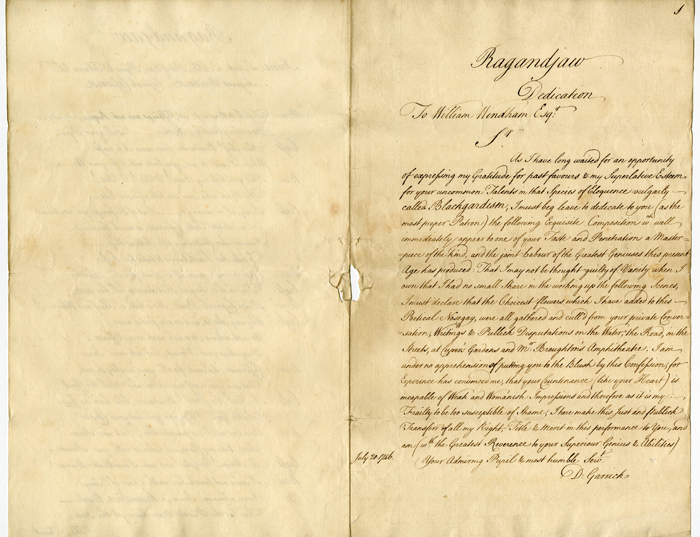 1
Ragandjaw
Dedication
To William Windham Esqr.
Sr.
As I have long waited for an opportunity
of expressing my Gratitude for past favours & my Superlative Esteem
for your uncommon Talents in that Species of Eloquence vulgarly
called Blackgardism, I must beg leave to dedicate to you (as the
most proper Patron) the following Exquisite Composition wch. will
immediately appear to one of your Taste and Penetration a Master-
piece of the kind, and the joint Labour of the Greatest Geniuses this present
Age has produced. That I may not be thought guilty of Vanity when I
own that I had no small share in the working up the following Scenes,
I must declare that the Choicest flowers which I have added to this
Poetical Nosegay, were all gathered and cull'd from your private Conver-
sation, Writings & Publick Disputations on the Water, the Road, in the
Streets, at Gardens and Mr. Braughton's Amphitheatre. I am
under no apprehension of putting you to the Blush by this Confession, for
Experience has convinced me, that your Countenance (like your Heart) is
incapable of Weak and Womanish Impressions and therefore as it is my
Frailty to be too susceptible of Shame, I have make this Just and Publick
Transfer of all my Right, Title & Merit in this performance to You, and
am (wth. the Greatest Reverence to your Superiour Genius & Abilities)
July 20 1746. Your Admiring Pupil & most humble Servt.
D. Garrick